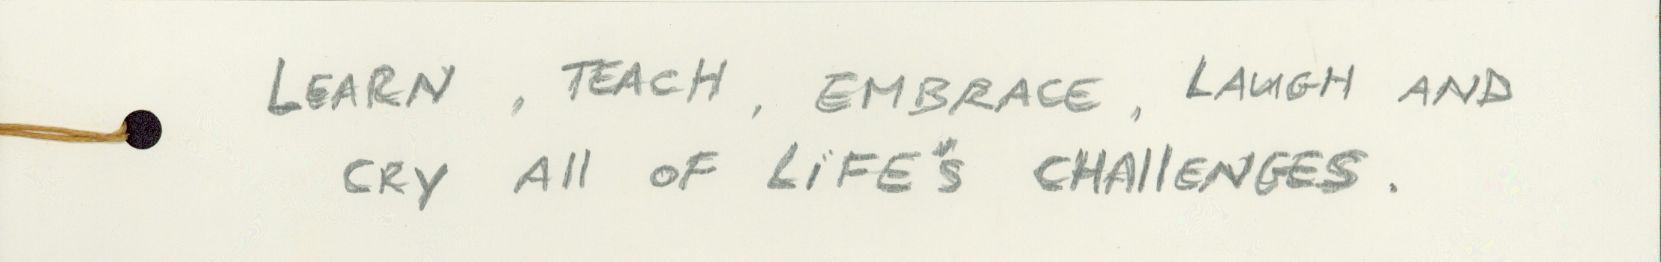 LEARN , TEACH , EMBRACE , LAUGH AND
CRY All OF LiFE's CHAllENGES .